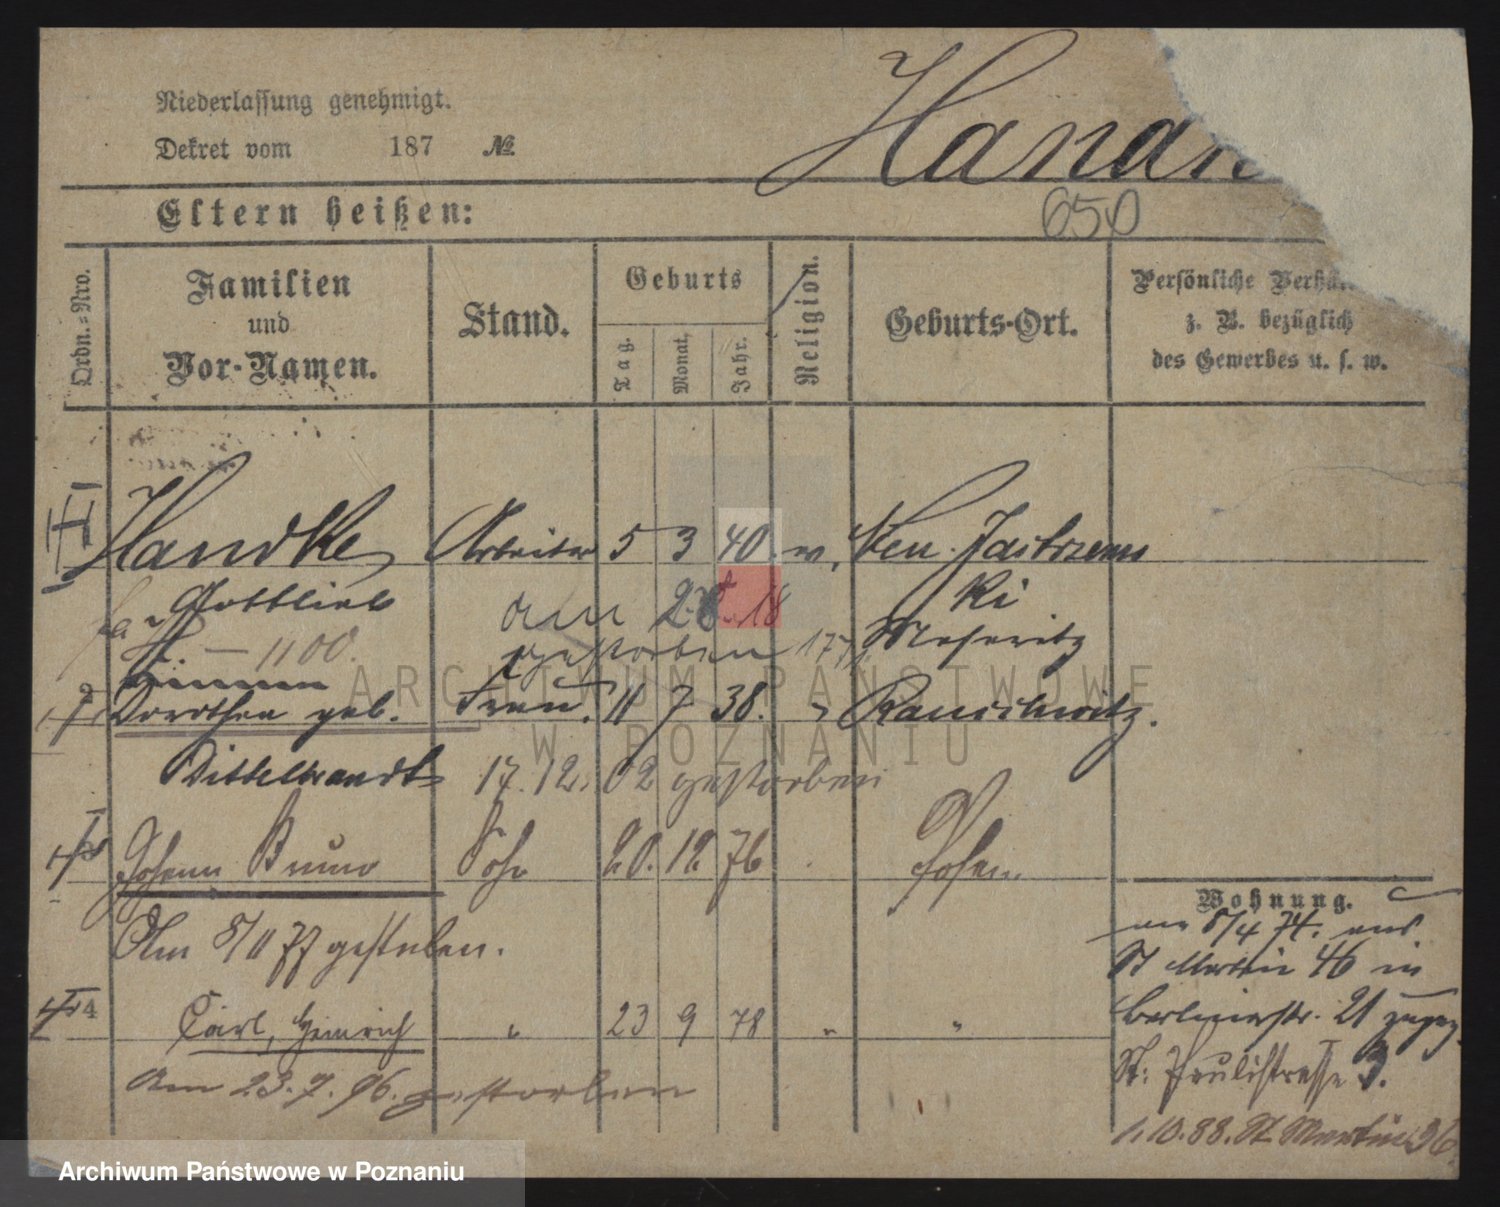 Niederlassung genehmigt.
Dekret vom 187 №
Handk
Eltern heißen:
650
Ordn.-Nro.
Familien
und
Vor-Namen.
Stand.
Geburts
Tag.
Monat.
Jahr.
Religion.
Geburts-Ort.
Persönliche Verhä
z. B. bezüglich
des Gewerbes u. s. w.
Handke Arbeiter 5 3 40. Neu Jastrzems
Gottlieb ki
am 18
1100. gestorben Meseritz
Dorothea geb. Frau. 11 7 38. Rauschwitz.
Dittelbrandt 17.12. 02 gestorben
Johann Bruno Sohn 20. 12 76 Posen
Am 8/11 77 gestorben.
4 Carl, Heinrich " 23 9 78 " "
Am 23.7.96. gestorben
Wohnung.
am 8/4 74. aus
St Martin 46 in
Berlinerstr. 21
St. Paulistrasse 3.
1.10.88. St. Martin 36
ARCHIWUM PAŃSTWOWE
W POZNANIU
Archiwum Państwowe w Poznaniu